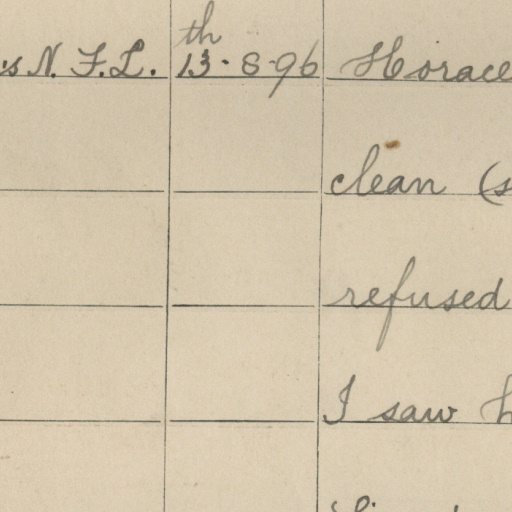 's N. F. L. 13th-8-96 Horace
clean (s
refused
I saw h